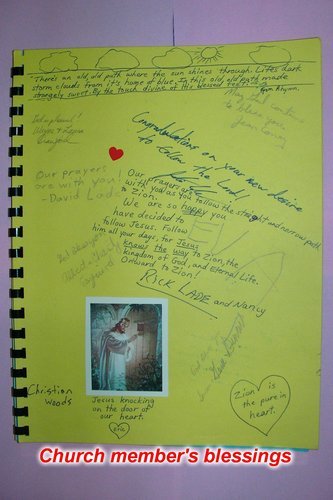 "There's an old, old path where the sun shines through. Life's dark
storm clouds from it's home of blue. In this old, old path made
strangely sweet. By the touch divine of His blessed feet."
May God continue
to bless you
Congratulations on your new desire
to follow the Lord!
Our prayers
are with you!
- David Lade
Our Prayers are
with you as you follow the straight and narrow path
to Zion.
We are so happy you
have decided to
follow Jesus. Follow
him all your days, for Jesus
knows the way to Zion, the
Kingdom of God, and Eternal Life.
Onward, to Zion!
RICK LADE and Nancy
Christian
Woods
Jesus knocking
on the door of
our heart.
Zion is
the pure in
heart.
Church member's blessings